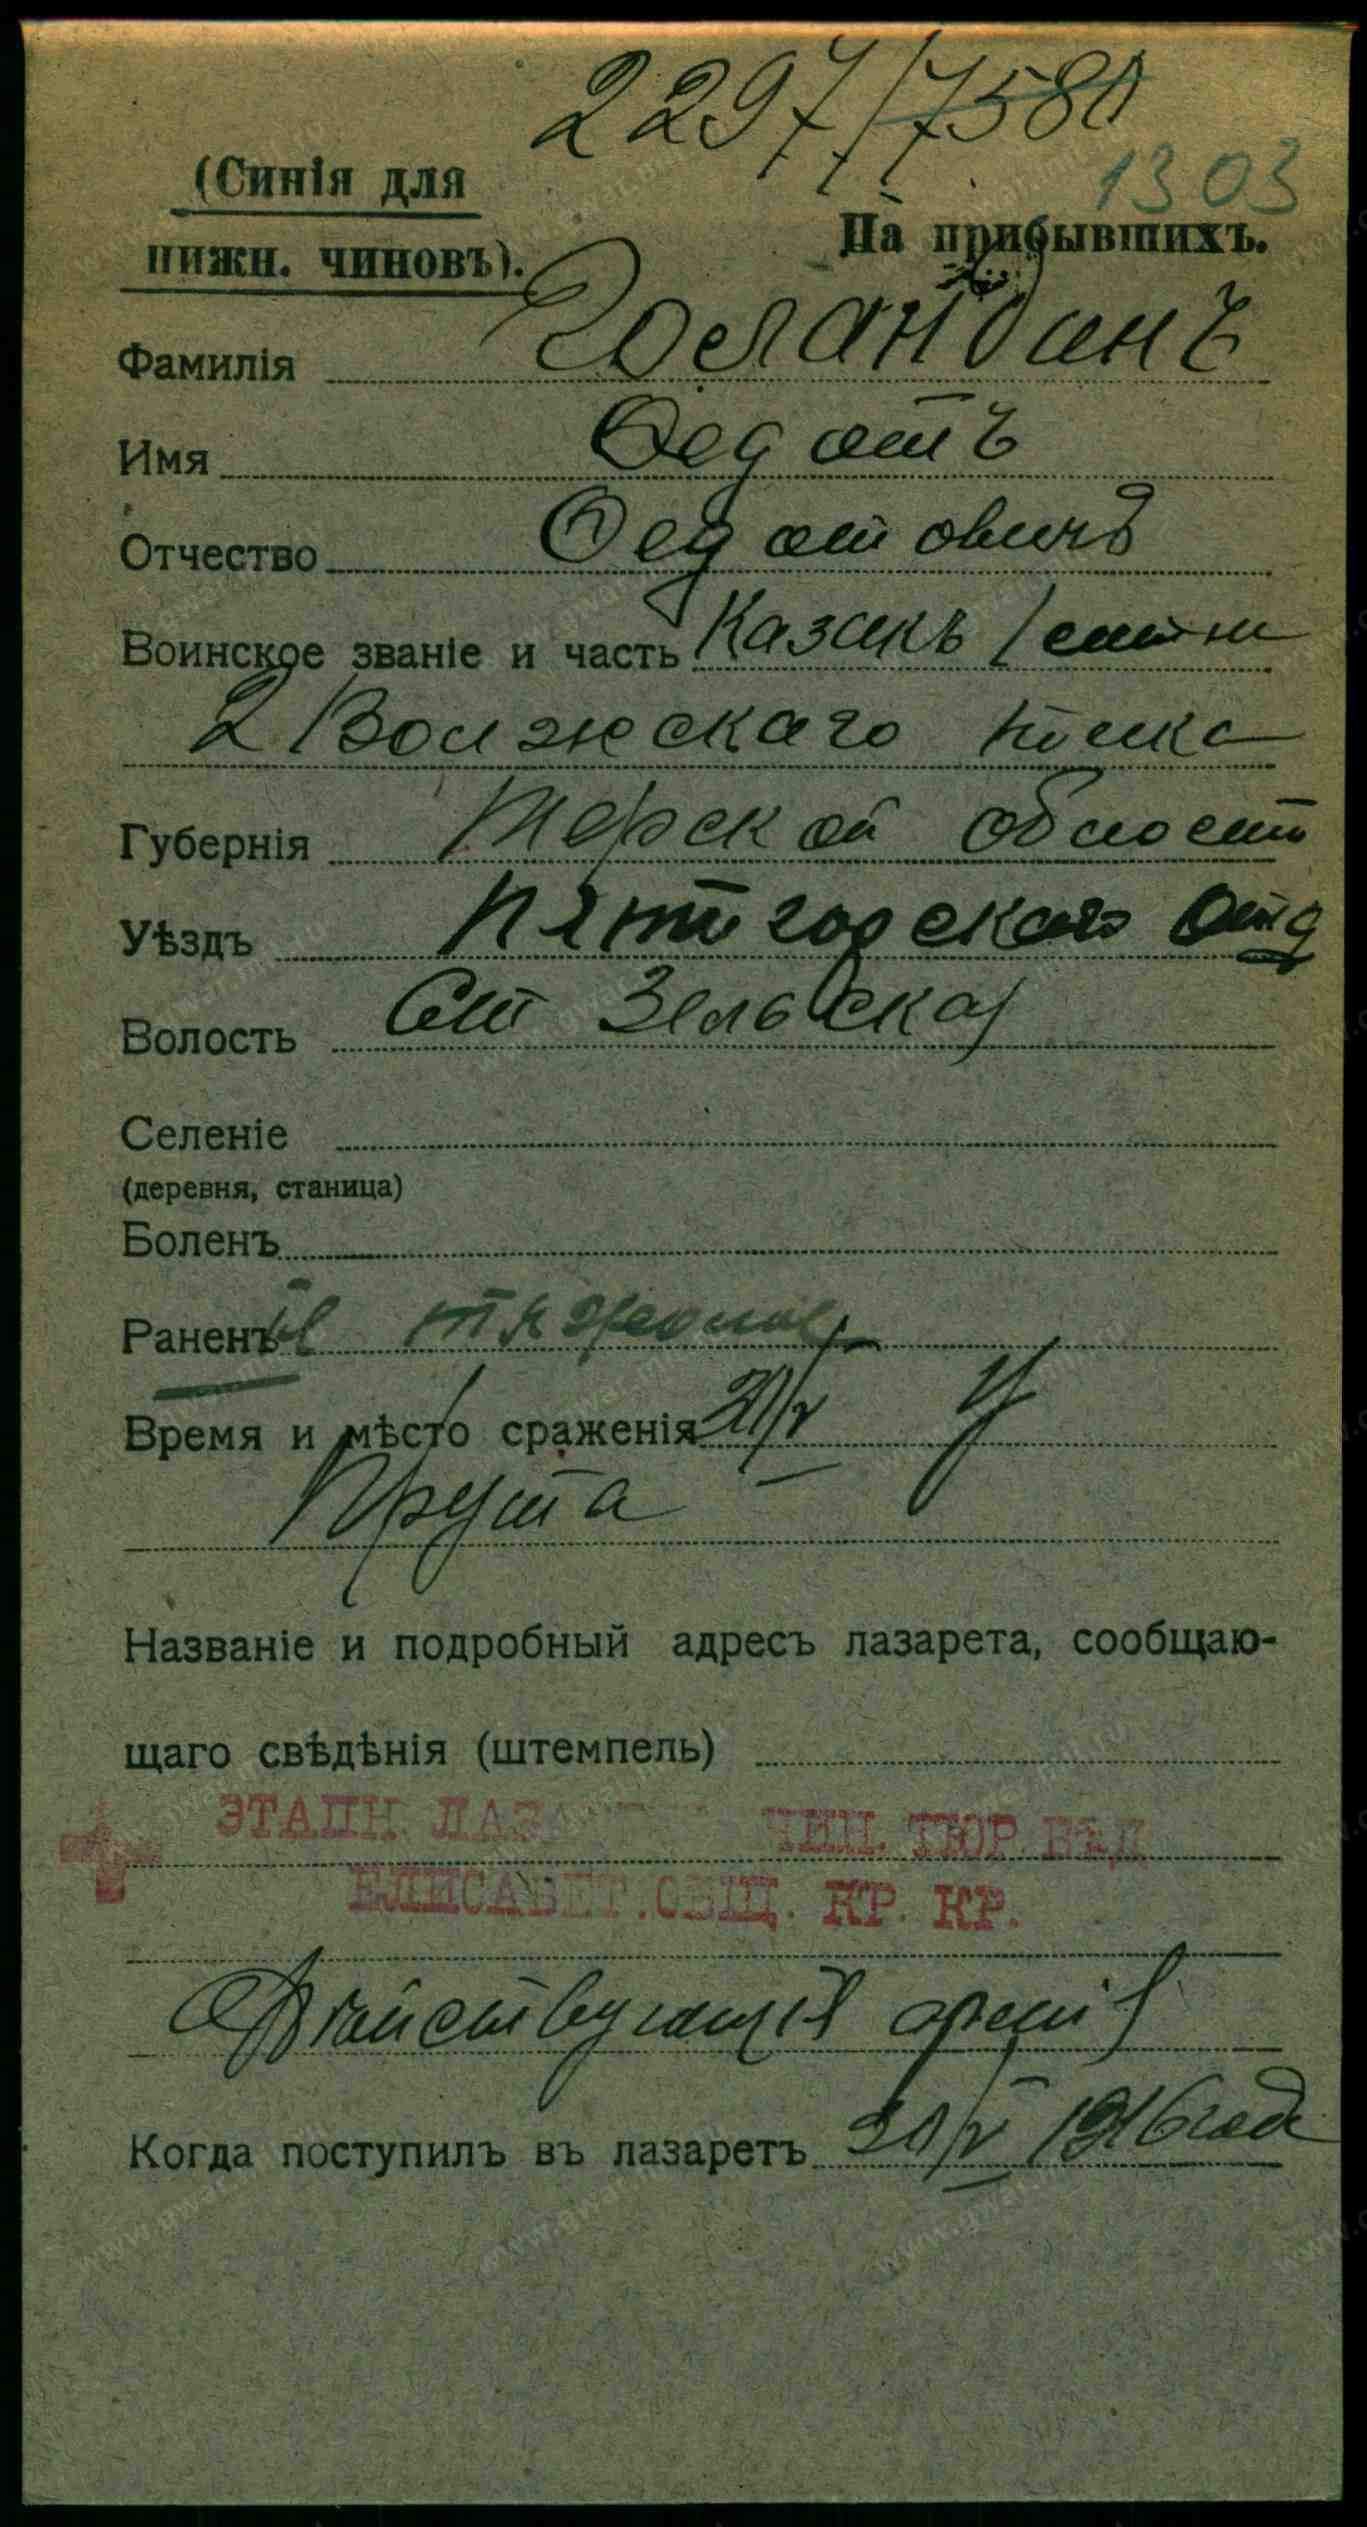 2297/7580
1303
(Синія для
нижн. чиновъ).
На прибывшихъ.
Фамилія Голандинъ
Имя Федотъ
Отчество Федотовичъ
Воинское званіе и часть Казакъ 1 сотни
2 Волжскаго полка
Губернія Терской области
Уѣздъ Пятигорскаго Отд
Волость Ст Зельская
Селеніе
(деревня, станица)
Боленъ
Раненъ тяжело
Время и мѣсто сраженія У
Прута
Названіе и подробный адресъ лазарета, сообщаю-
щаго свѣдѣнія (штемпель)
ЭТАПН. ЛАЗ ЧИН. ТЮР. ВѢД.
ЕЛИСАВЕТ. ОБЩ. КР. КР.
Дѣйствующая армія
Когда поступилъ въ лазаретъ 30/V 1916 года